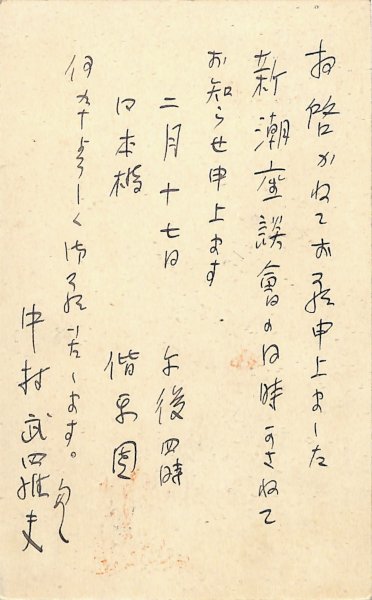 拝啓 かねてお願申上ました
新潮座談會の日時かさねて
お知らせ申上ます
二月十七日 午後四時
日本橋 偕楽園
何卒よろしく御願いたします。匆々
中村武羅夫